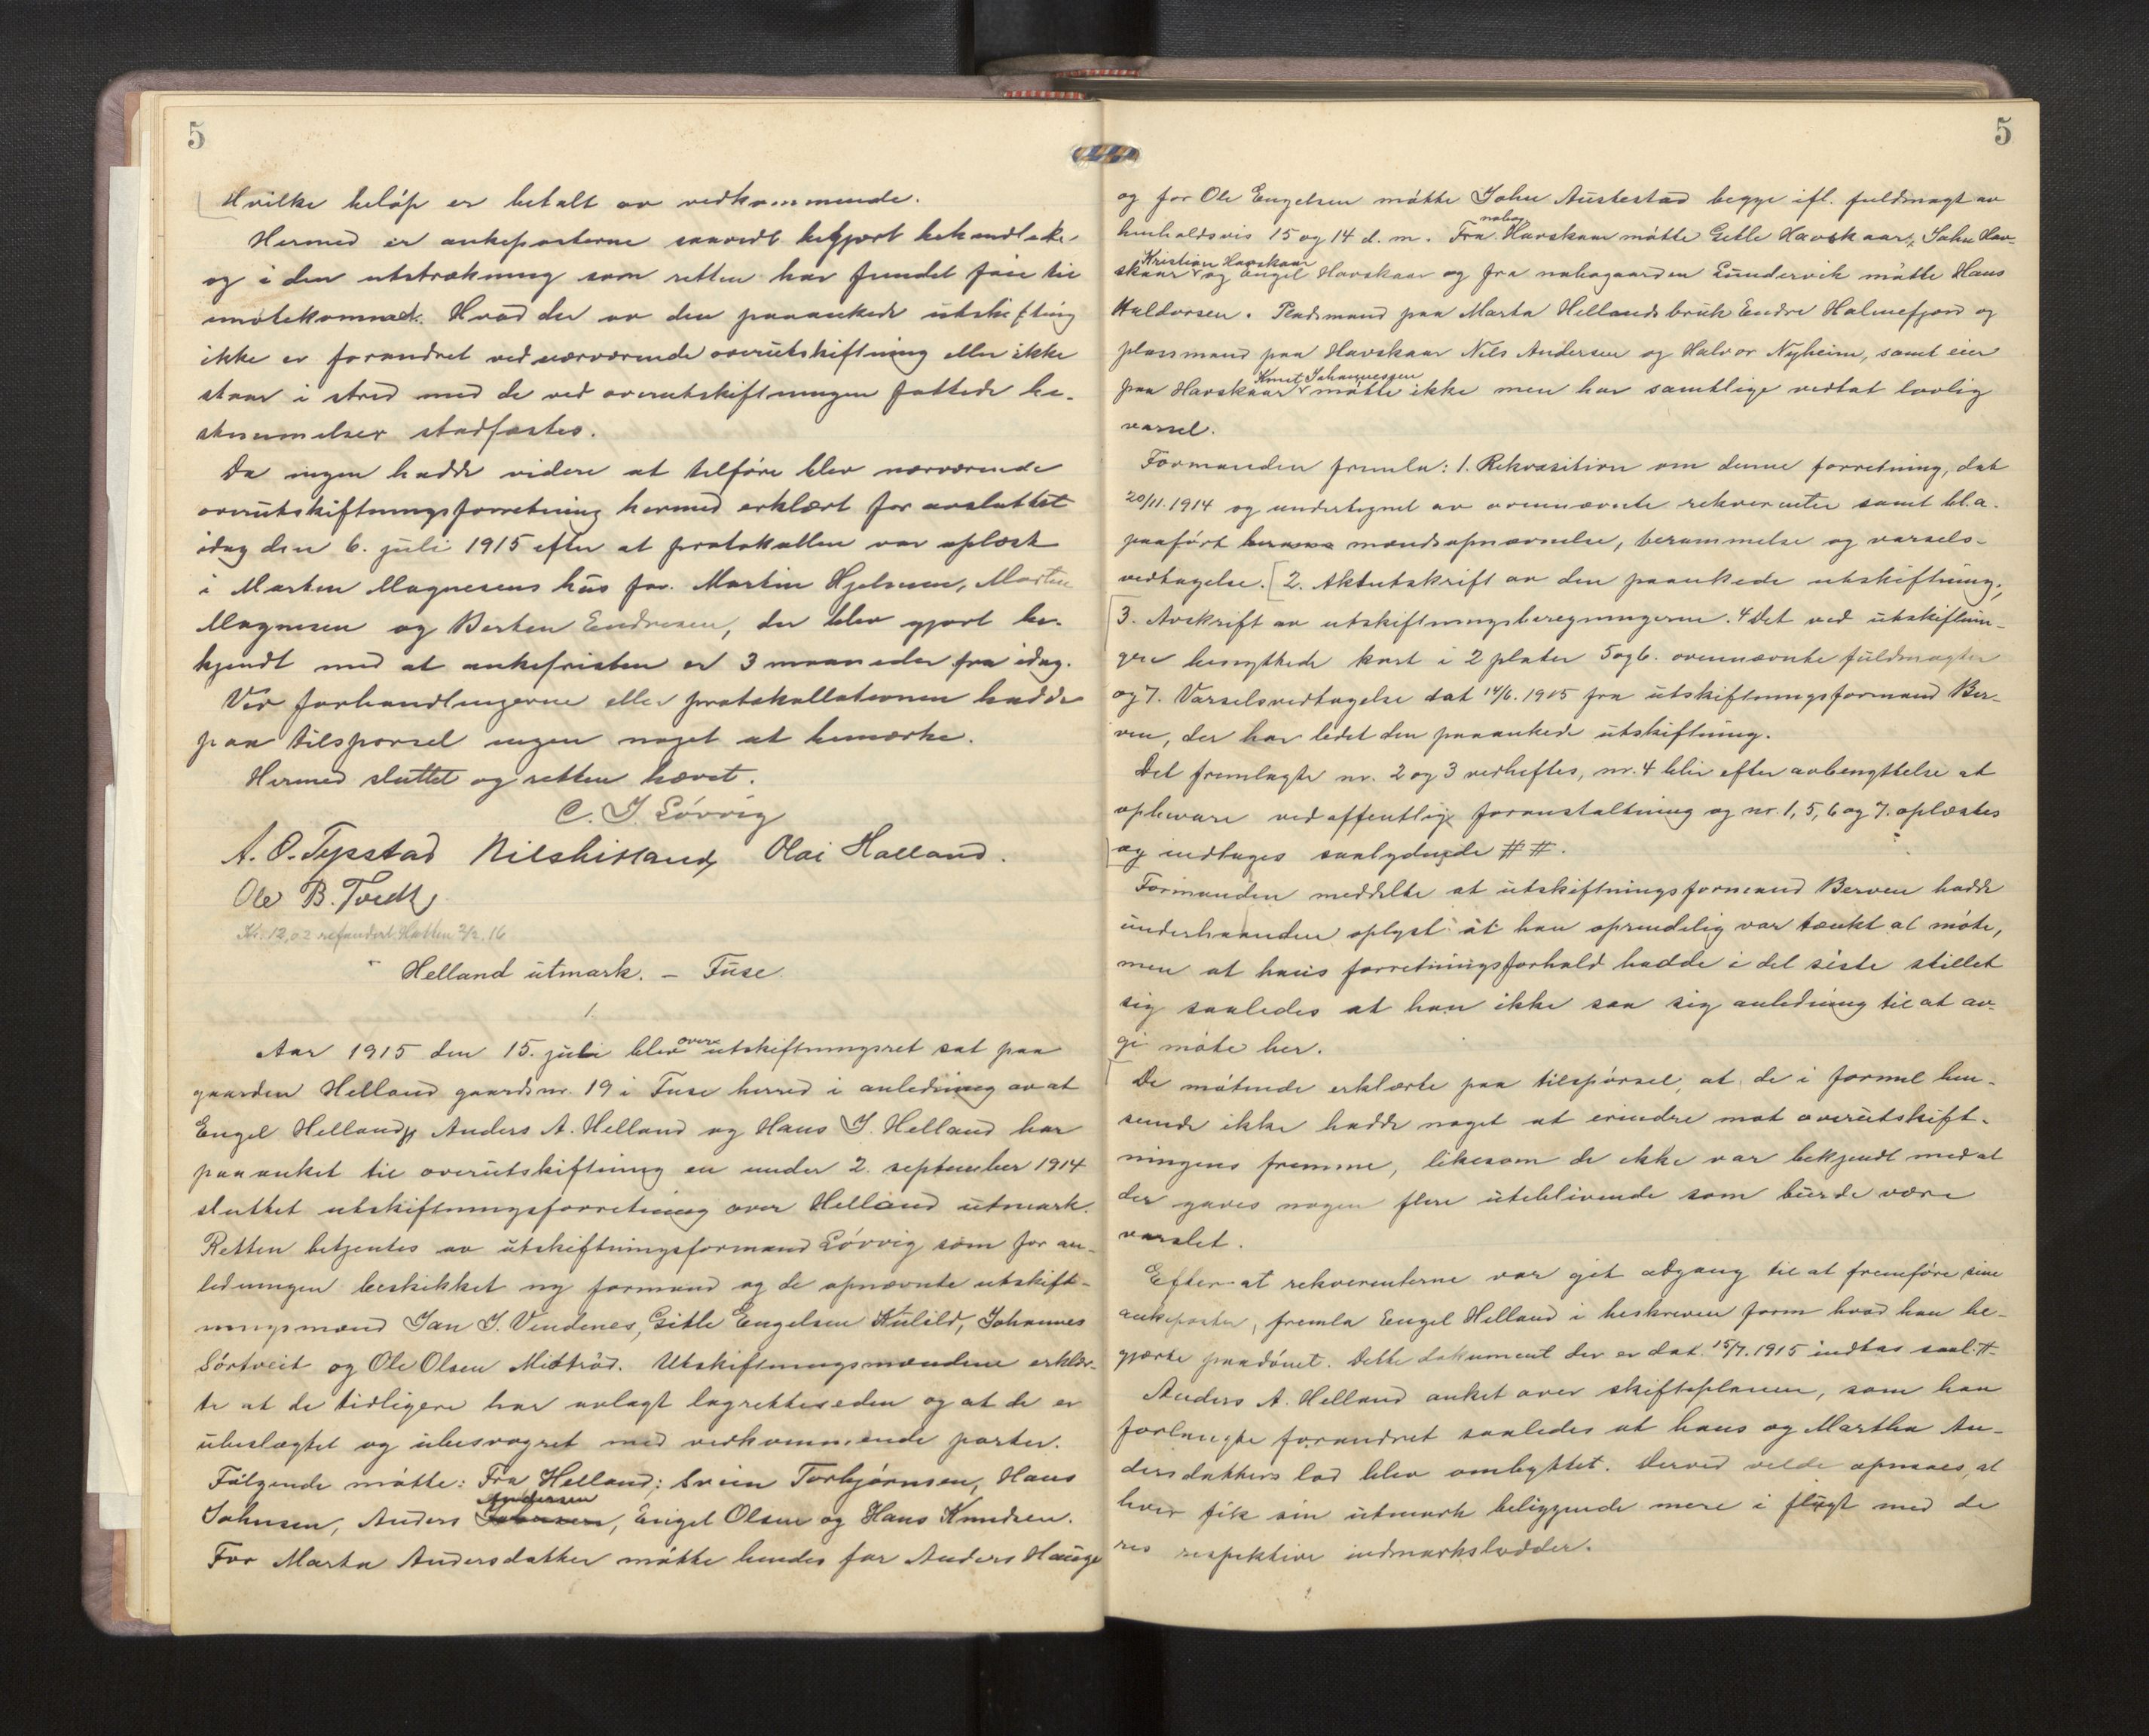 5
Hvilke beløp er betalt av vedkommende.
Hermed er ankeposterne saavidt begjært behandlete
og i den utstrækning som retten har fundet føie til
imøtekommet. Hvad der av den paaankede utskiftning
ikke er forandret ved nærværende overutskiftning eller ikke
staar i strid med de ved overutskiftningen fattede be-
stemmelser stadfæstes.
Da ingen hadde videre at tilføre blev nærværende
overutskiftningsforretning hermed erklært for avsluttet
idag den 6. juli 1915 efter at protokollen var oplæst
i Marten Magnesens hus for Martin Hjelmen, Marten
Magnesen og Berten Endresen, der blev gjort be-
kjendt med at ankefristen er 3 maaneder fra idag.
Ved forhandlingerne eller protokollationen hadde
paa tilspørsel ingen noget at bemærke.
Hermed sluttet og retten hævet.
C. J. Løvvig
A. O. Tepstad Nils Kilsland Olai Halland.
Ole B. Tvedt
Kr. 12,02 refundert Hatten 2/2. 16
Helland utmark. – Fuse.
1.
Aar 1915 den 15. juli blev overutskiftningsret sat paa
gaarden Helland gaardsnr. 19 i Fuse herred i anledning av at
Engel Helland, Anders A. Helland og Hans J. Helland har
paaanket til overutskiftning en under 2. september 1914
sluttet utskiftningsforretning over Helland utmark.
Retten betjentes av utskiftningsformand Løvvig som for an-
ledningen beskikket ny formand og de opnævnte utskift-
ningsmænd Jan J. Vendenes, Gitle Engelsen Kulild, Johannes
Sørtveit og Ole Olsen Mittrød. Utskiftningsmændene erklær-
te at de tidligere har avlagt lagretteseden og at de er
ubeslægtet og ubesvogret med vedkommende parter.
Følgende møtte: Fra Helland: Svein Torbjørnsen, Hans
Johnsen, Anders Andersen, Engel Olsen og Hans Knudsen.
For Marta Andersdatter møtte hendes far Anders Hauge
5
og for Ole Engelsen møtte John Austestad begge ifl. fuldmagt av
henholdsvis 15 og 14 d. m. Fra nabog. Havskaar møtte Gitle Havskaar, John Hav-
skaar Kristian Havskaar og Engel Havskaar og fra nabogaarden Lundervik møtte Hans
Haldorsen. Pladsmand paa Marta Hellands bruk Endre Holmefjord og
plassmand paa Havskaar Nils Andersen og Halvor Nyheim, samt eier
paa Havskaar Knut Johannessen møtte ikke men har samtlige vedtat lovlig
varsel.
Formanden fremla: 1. Rekvisition om denne forretning, dat
20/11. 1914 og undertegnet av ovennævnte rekvirenter samt bl.a.
paaført mændsopnævnelse, berammelse og varsels-
vedtagelse. 2. Aktutskrift av den paankede utskiftning;
3. Avskrift av utskiftningsberegningerne. 4 Det ved utskiftnin-
gen benyttede kart i 2 plater 5 og 6. ovennævnte fuldmagter
og 7. Varselsvedtagelse dat 14/6. 1915 fra utskiftningsformand Ber-
ven, der har ledet den paaankede utskiftning.
Det fremlagte nr. 2 og 3 vedheftes, nr. 4 blir efter avbenyttelse at
opbevare ved offentlig foranstaltning og nr. 1, 5, 6 og 7. oplæstes
og indtages saalydende # #.
Formanden meddelte at utskiftningsformand Berven hadde
underhaanden oplyst at han oprindelig var tænkt at møte,
men at hans forretningsforhold hadde i det siste stillet
sig saaledes at han ikke saa sig anledning til at av-
gi møte her.
De møtende erklærte paa tilspørsel, at de i formel hen-
seende ikke hadde noget at erindre mot overutskift-
ningens fremme, likesom de ikke var bekjendt med at
der gaves nogen flere uteblivende som burde være
varslet.
Efter at rekvirenterne var git adgang til at fremføre sine
ankeposter, fremla Engel Helland i beskreven form hvad han be-
gjærte paadømt. Dette dokument der er dat. 15/7. 1915 indtas saal. #
Anders A. Helland anket over skifteplanen, som han
forlangte forandret saaledes at hans og Martha An-
dersdatters lod blev ombyttet. Derved vilde opnaaes, at
hver fik sin utmark beliggende mere i flugt med de
res respektive indmarkslodder.